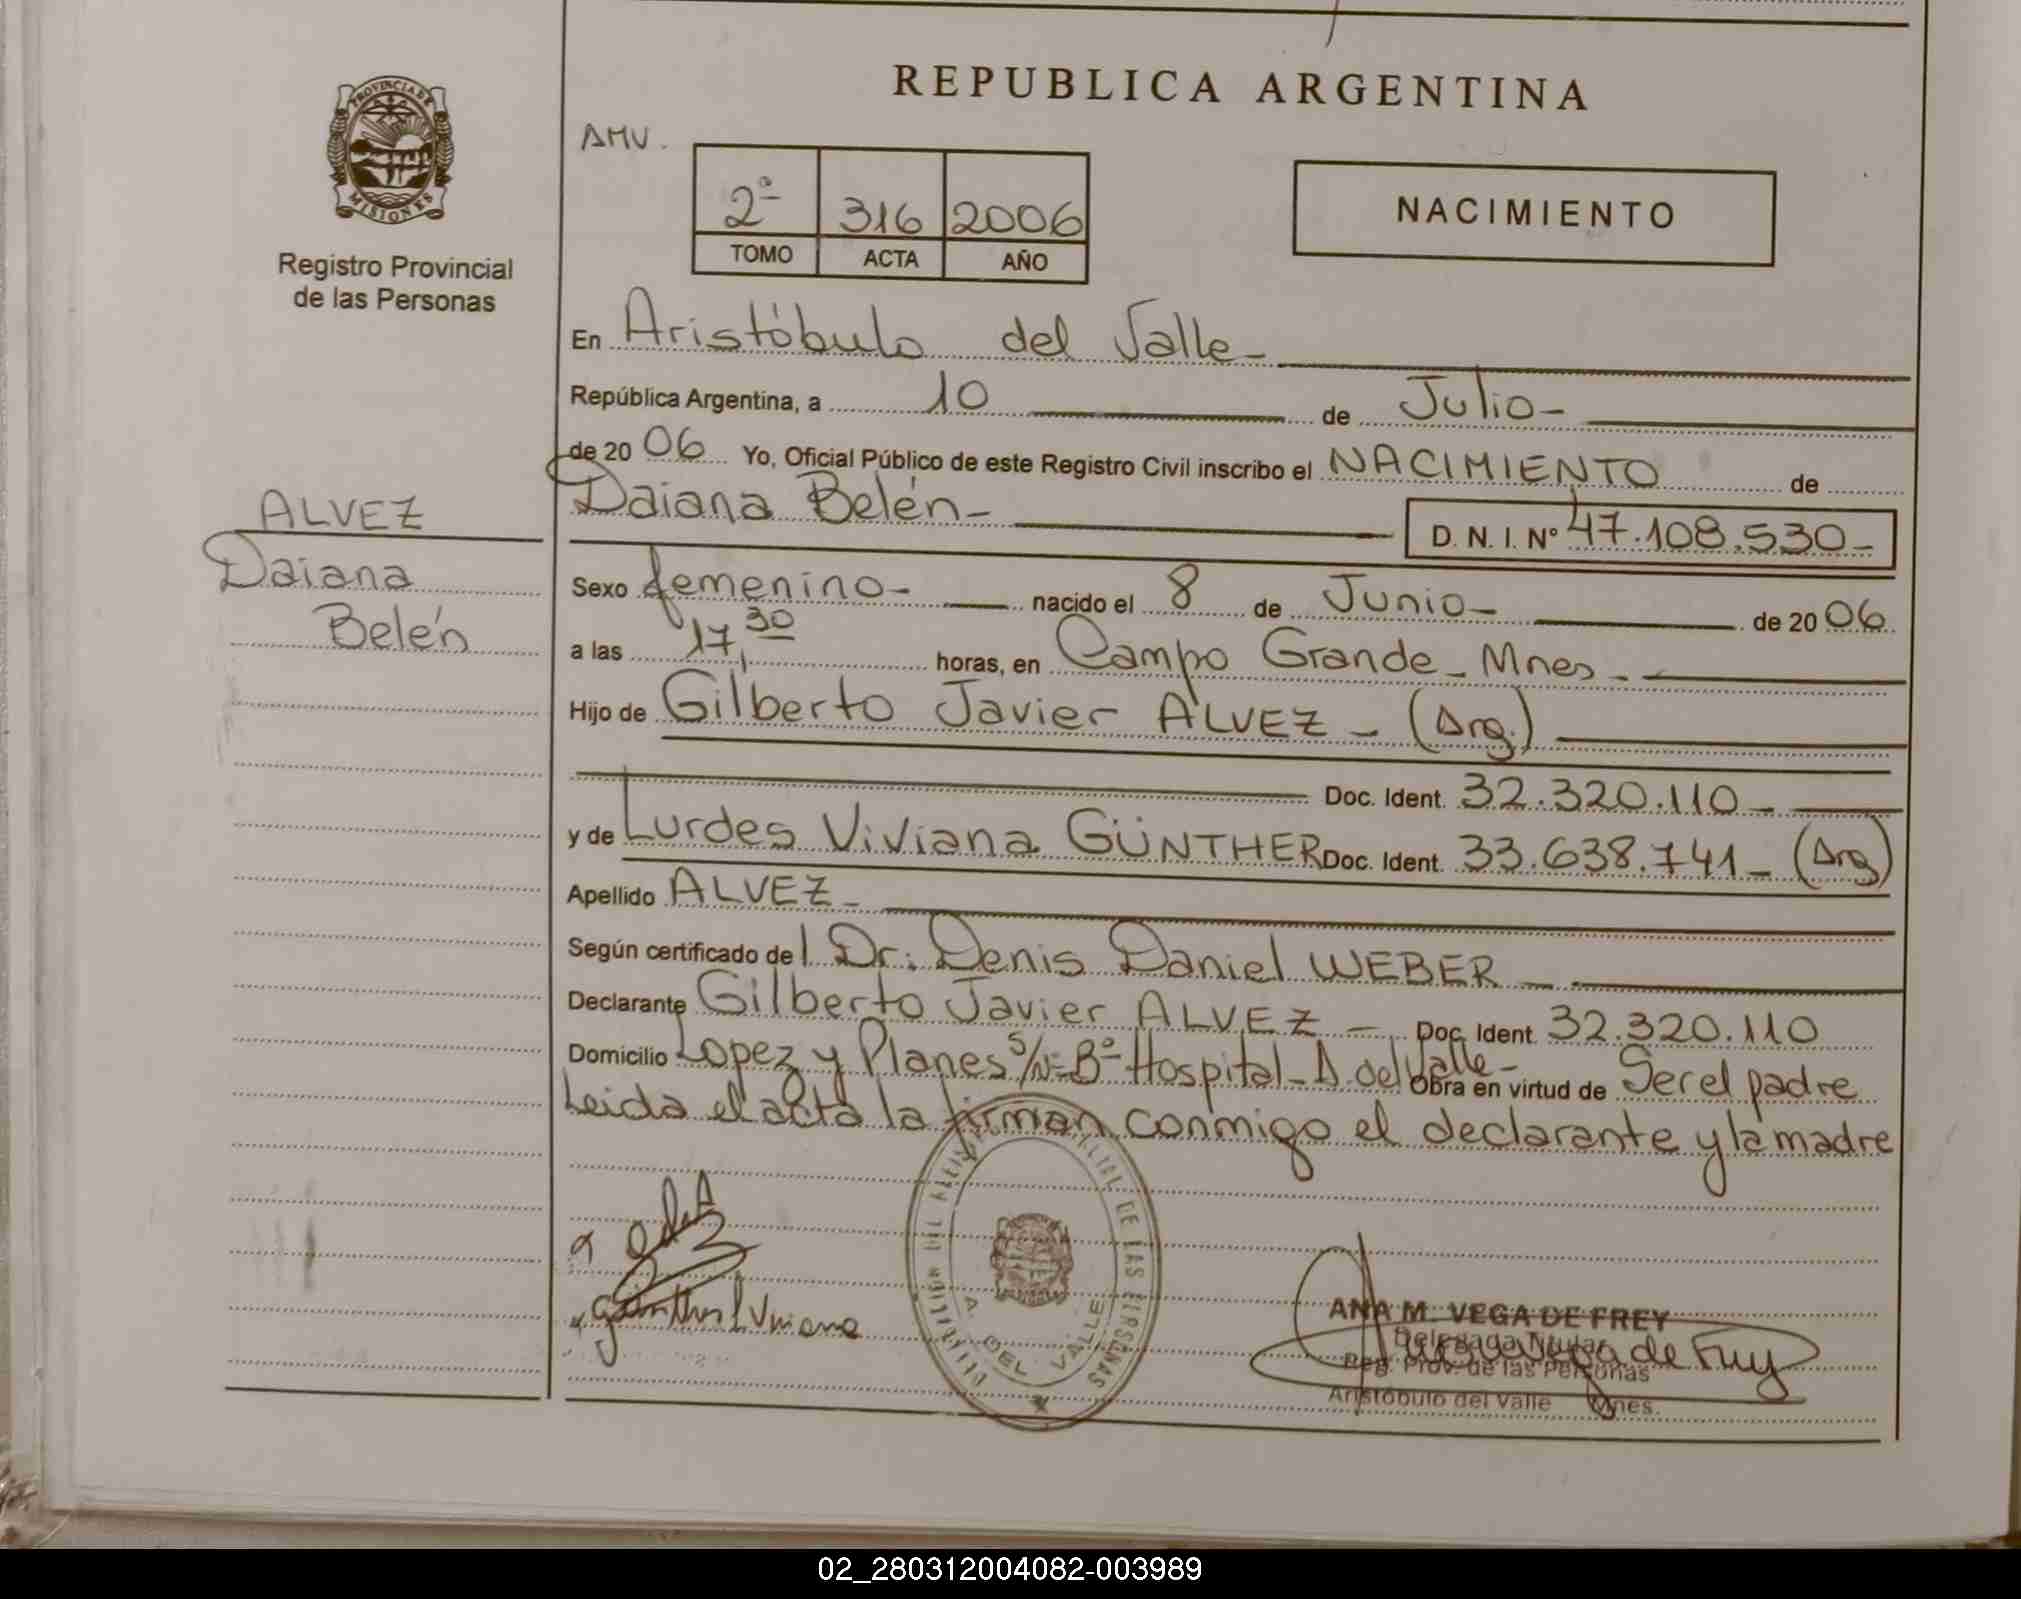 REPUBLICA ARGENTINA
PROVINCIA DE MISIONES
Registro Provincial
de las Personas
AMV.
2ª 316 2006
TOMO ACTA AÑO
NACIMIENTO
En Aristóbulo del Valle-
República Argentina, a 10 de Julio-
de 2006 Yo, Oficial Público de este Registro Civil inscribo el NACIMIENTO de
Daiana Belén-
D. N. I. Nº 47.108.530-
ALVEZ
Daiana
Belén
Sexo femenino- nacido el 8 de Junio- de 2006
a las 17,30 horas, en Campo Grande - Mnes -
Hijo de Gilberto Javier ALVEZ - (Arg.)
Doc. Ident. 32.320.110-
y de Lurdes Viviana GÜNTHER Doc. Ident. 33.638.741- (Arg)
Apellido ALVEZ-
Según certificado del Dr. Denis Daniel WEBER-
Declarante Gilberto Javier ALVEZ- Doc. Ident. 32.320.110
Domicilio Lopez y Planes S/Nº Bº Hospital - A. del Valle- Obra en virtud de Ser el padre
Leida el acta la firman conmigo el declarante y la madre
DE LAS PERSONAS
A. DEL VALLE
ANA M. VEGA DE FREY
Delegada Titular
Reg. Prov. de las Personas
Aristóbulo del Valle Mnes.
02_280312004082-003989